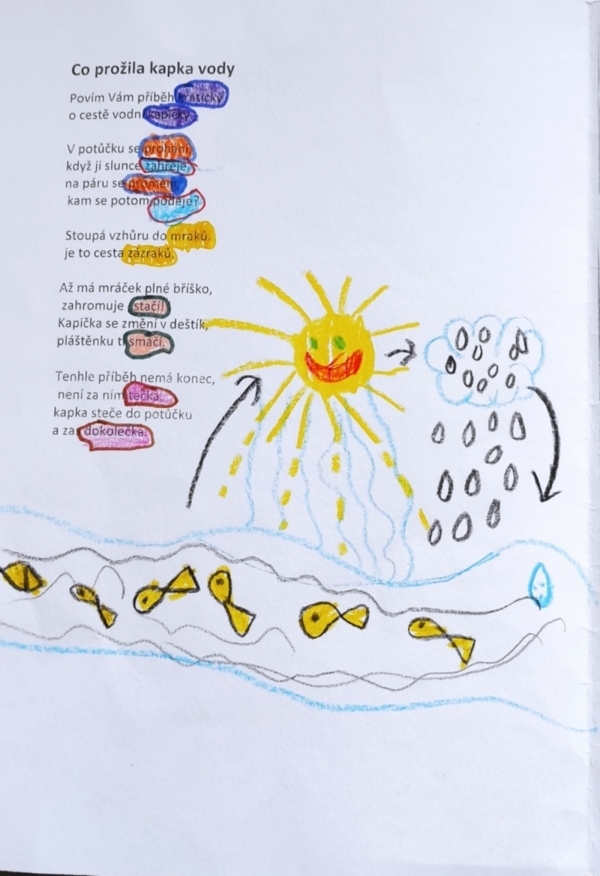 Co prožila kapka vody
Povím Vám příběh kratičký
o cestě vodní kapičky.
V potůčku se prohání,
když ji slunce zahřeje,
na páru se promění,
kam se potom poděje?
Stoupá vzhůru do mraků.
je to cesta zázraků.
Až má mráček plné bříško,
zahromuje stačí!
Kapička se změní v deštík,
pláštěnku ti smáčí.
Tenhle příběh nemá konec,
není za ním tečka.
kapka steče do potůčku
a zas dokolečka.